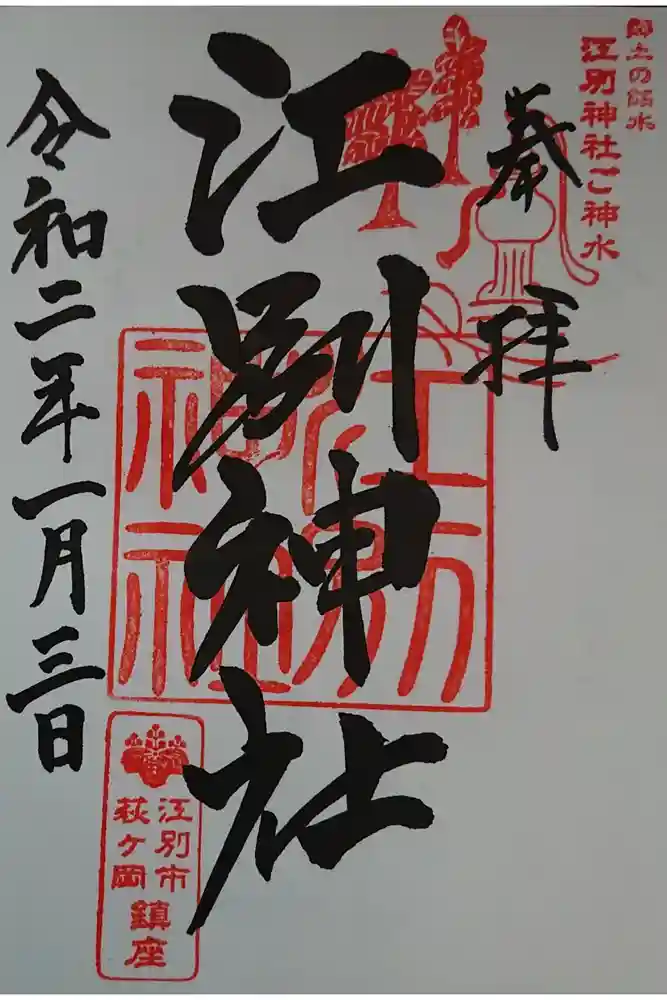 郷土の銘水
江別神社ご神水
奉拝
江別神社
江別神社
江別市
萩ヶ岡
鎮座
令和二年一月三日